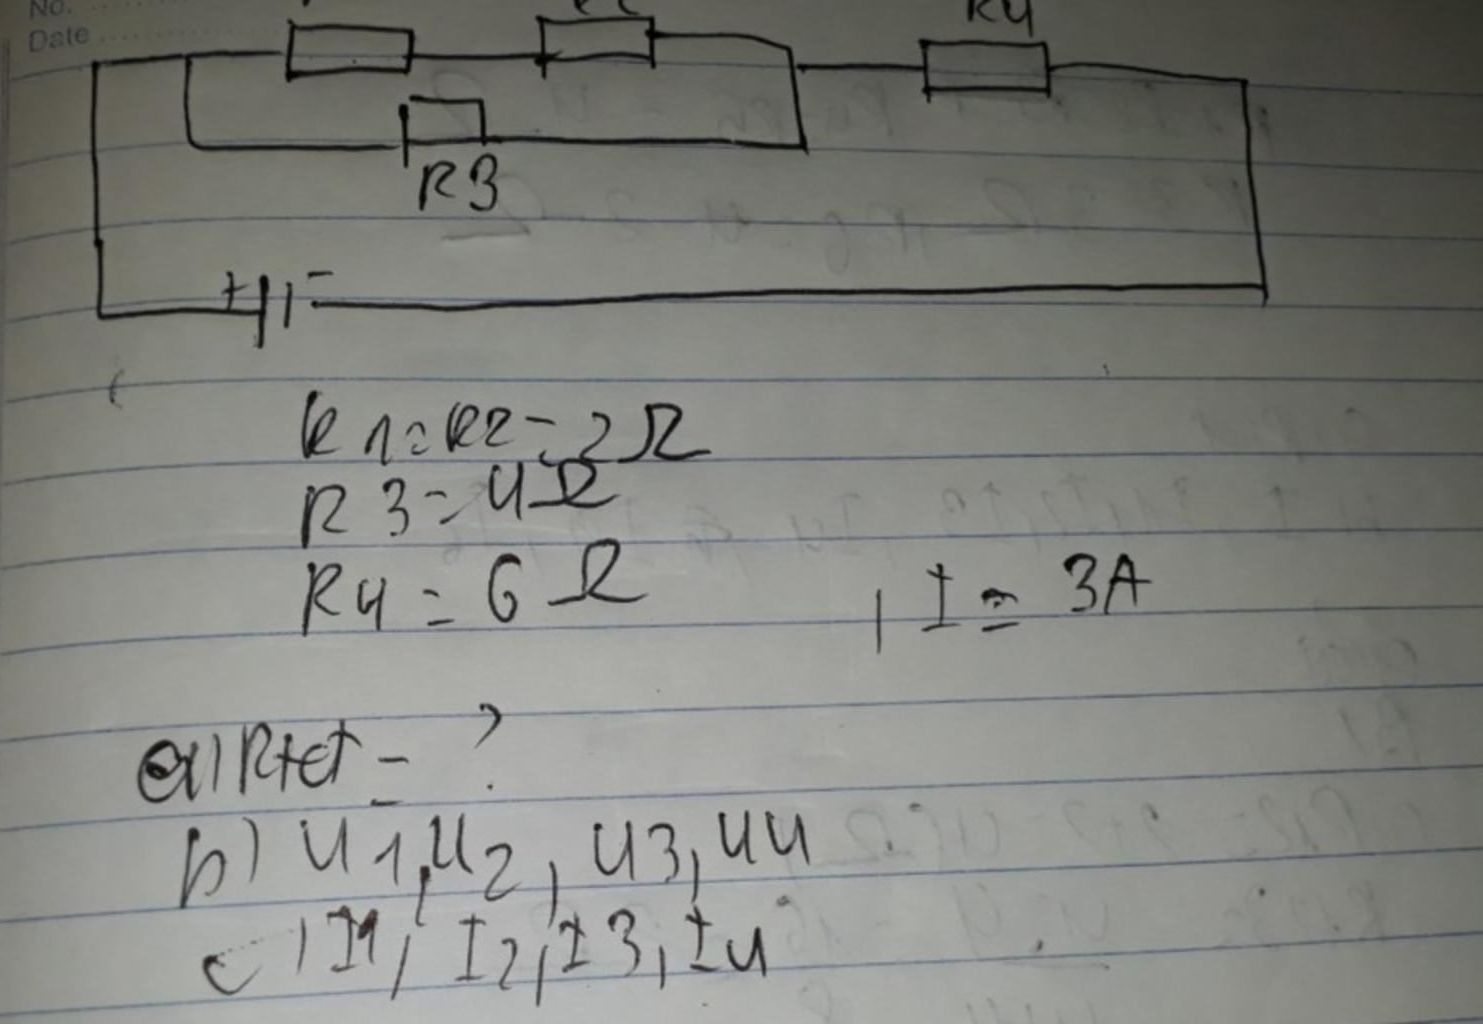 No.
Date
R4
R3
+ -
R1=R2=2Ω
R3=4Ω
R4=6Ω , I=3A
a) Rtot=?
b) U1, U2, U3, U4
c) I1, I2, I3, I4